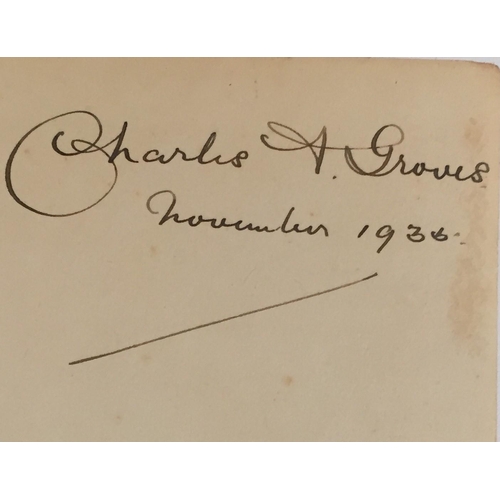 Charles A. Groves
November 1936.